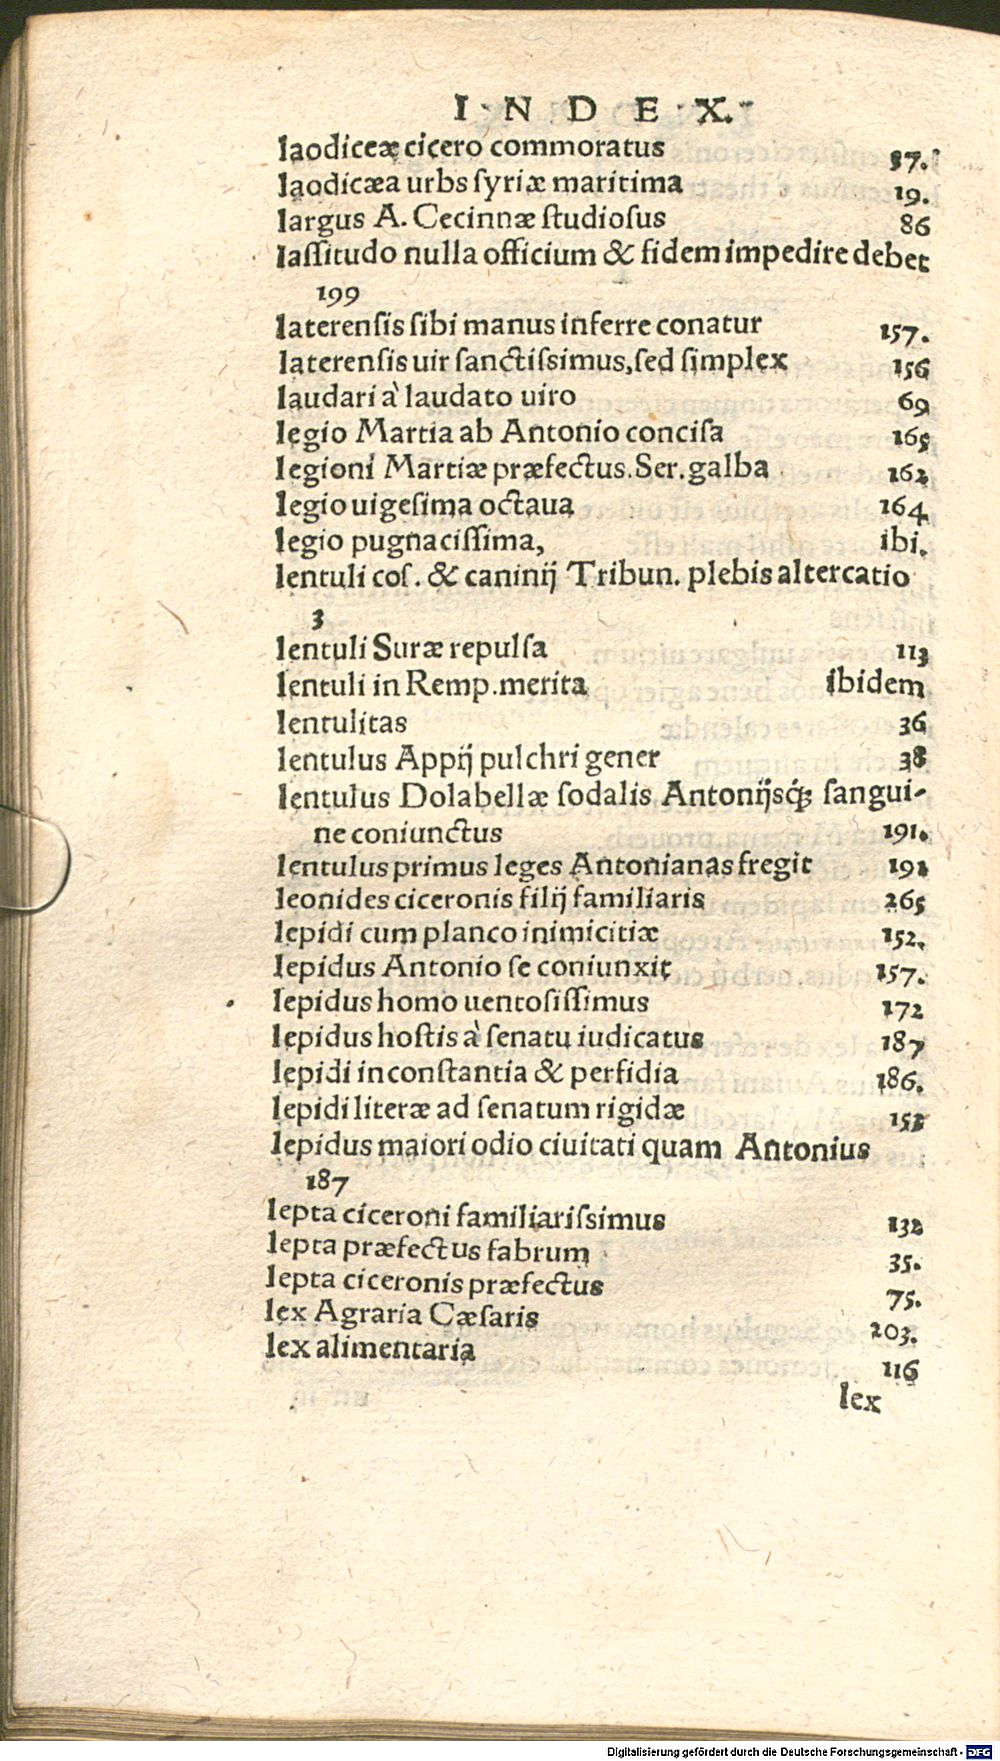 I N D E X.
laodiceæ cicero commoratus 37.
laodicæa urbs ſyriæ maritima 19.
largus A. Cecinnæ ſtudioſus 86
laſſitudo nulla officium & fidem impedire debet
199
laterenſis ſibi manus inferre conatur 157.
laterenſis uir ſanctiſsimus, ſed ſimplex 156
laudari à laudato uiro 69
legio Martia ab Antonio conciſa 165
legioni Martiæ præfectus. Ser. galba 162
legio uigeſima octaua 164
legio pugnaciſſima, ibi.
lentuli coſ. & caninij Tribun. plebis altercatio
3
lentuli Suræ repulſa 113
lentuli in Remp. merita ibidem
lentulitas 36
lentulus Appij pulchri gener 38
lentulus Dolabellæ ſodalis Antonijsq́; ſangui-
ne coniunctus 191.
lentulus primus leges Antonianas fregit 192
leonides ciceronis filij familiaris 265
lepidi cum planco inimicitiæ 152.
lepidus Antonio ſe coniunxit 157.
lepidus homo uentoſiſſimus 172
lepidus hoſtis à ſenatu iudicatus 187
lepidi inconſtantia & perfidia 186.
lepidi literæ ad ſenatum rigidæ
lepidus maiori odio ciuitati quam Antonius
187
lepta ciceroni familiariſsimus 132
lepta præfectus fabrum 35.
lepta ciceronis præfectus 75.
lex Agraria Cæſaris 203.
lex alimentaria 116
lex
Digitalisierung gefördert durch die Deutsche Forschungsgemeinschaft - DFG